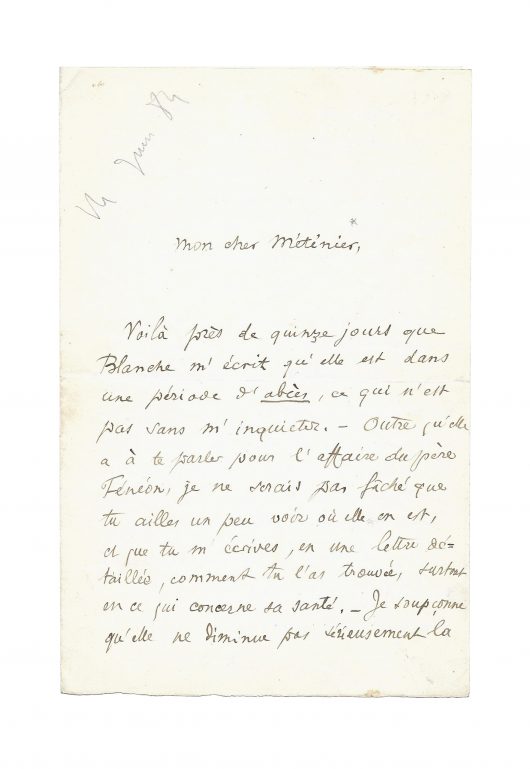 14 Juin 84
Mon cher Méténier, *
Voilà près de quinze jours que
Blanche m'écrit qu'elle est dans
une période d'abcès, ce qui n'est
pas sans m'inquieter. – Outre qu'elle
a à te parler pour l'affaire du père
Fénéon, je ne serais pas fâché que
tu ailles un peu voir où elle en est,
et que tu m'écrives, en une lettre dé=
taillée, comment tu l'as trouvée, surtout
en ce qui concerne sa santé. – Je soupçonne
qu'elle ne diminue pas sérieusement la